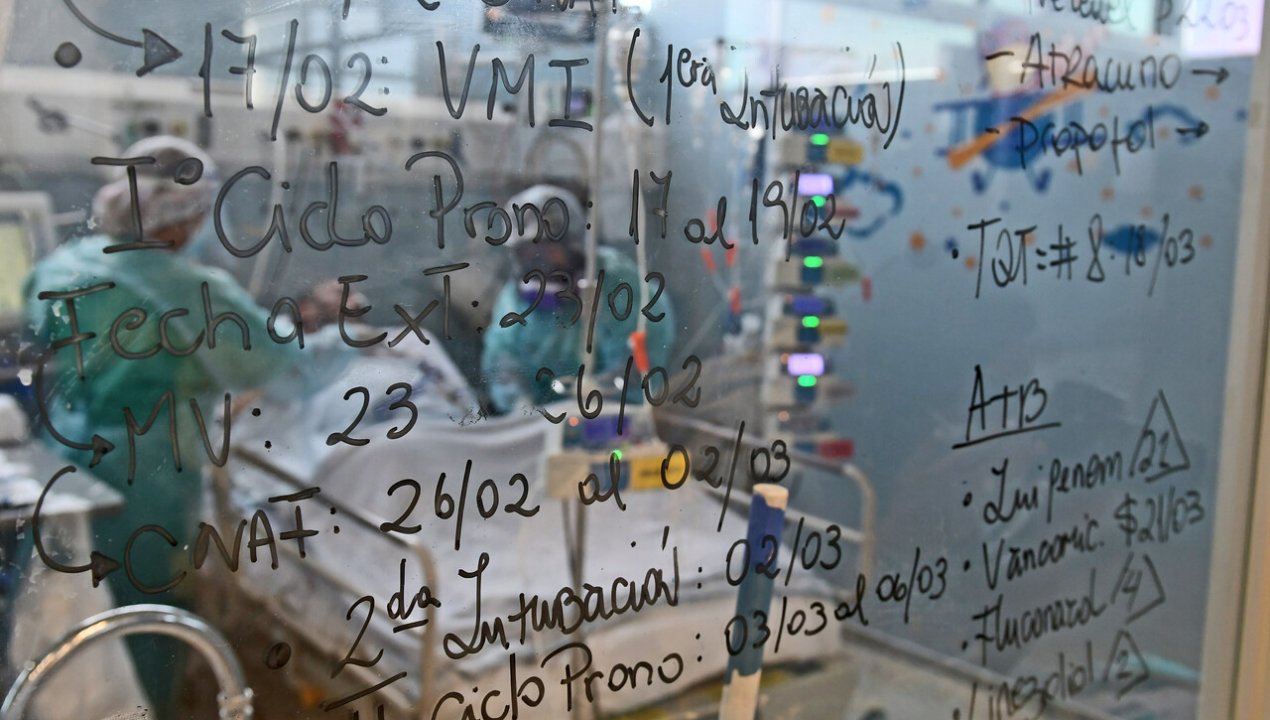 17/02: VMI (1era Intubación)
I° Ciclo Prono: 17 al 19/02
Fecha Ext: 23/02
MV: 23 26/02
CNAF: 26/02 al 02/03
2da Intubación: 02/03
Ciclo Prono: 03/03 al 06/03
- Atracurio →
- Propofol →
TQT: #8 18/03
ATB
Imipenem 21
Vancomic. $21/03
Fluconazol 4